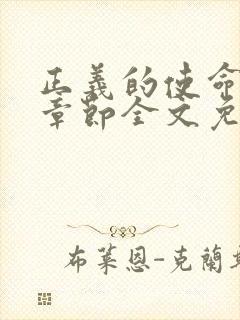 正義的使命
章節全文免
布萊恩-克蘭